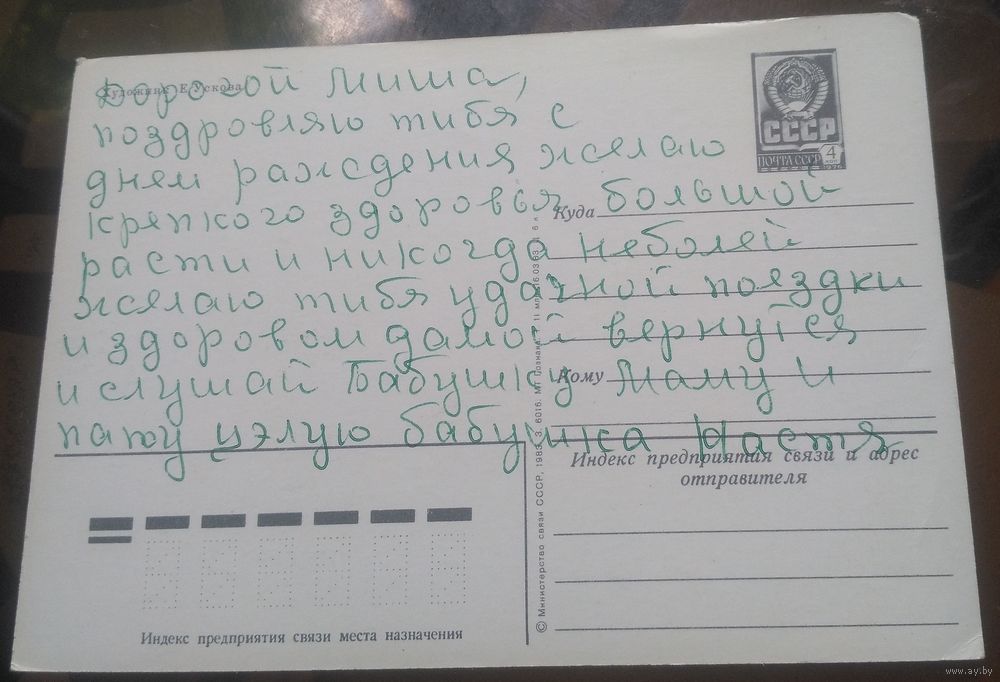 Художник Е. Ускова
дорогой Миша,
поздровляю тибя с
днем раждения желаю
кряпкого здоровья большой
расти и никогда неболей
желаю тибя удачной пояздки
и здоровом дамой вернутся
и слушай Бабушку Маму и
папу цэлую бабушка Настя
СССР
ПОЧТА СССР
4
КОП
1976
Куда
Кому
Индекс предприятия связи и адрес
отправителя
Индекс предприятия связи места назначения
© Министерство связи СССР, 1983. З. 6016. МТ Гознака.
www.ay.by